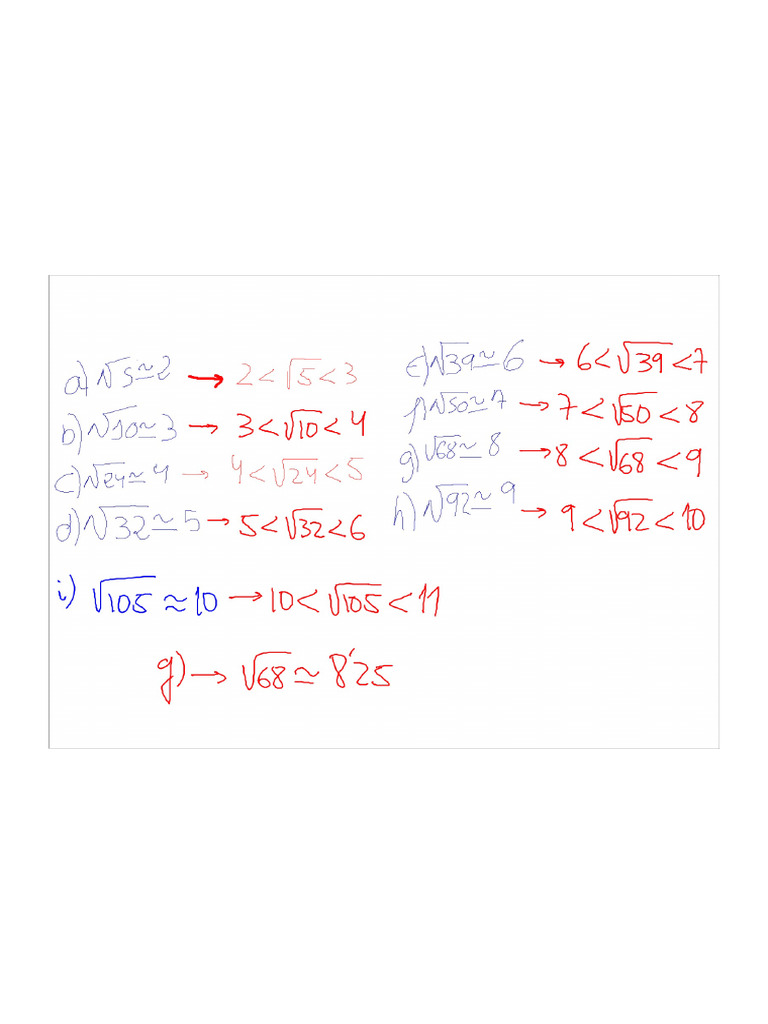 a) √5 ≃ 2 → 2 < √5 < 3
b) √10 ≃ 3 → 3 < √10 < 4
c) √24 ≃ 4 → 4 < √24 < 5
d) √32 ≃ 5 → 5 < √32 < 6
e) √39 ≃ 6 → 6 < √39 < 7
f) √50 ≃ 7 → 7 < √50 < 8
g) √68 ≃ 8 → 8 < √68 < 9
h) √92 ≃ 9 → 9 < √92 < 10
i) √105 ≈ 10 → 10 < √105 < 11
g) → √68 ≃ 8'25